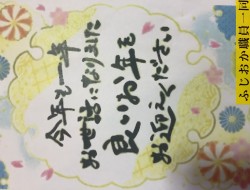 今年も一年
お世話になりました
良いお年を
お迎えください
ふじおか職員一同